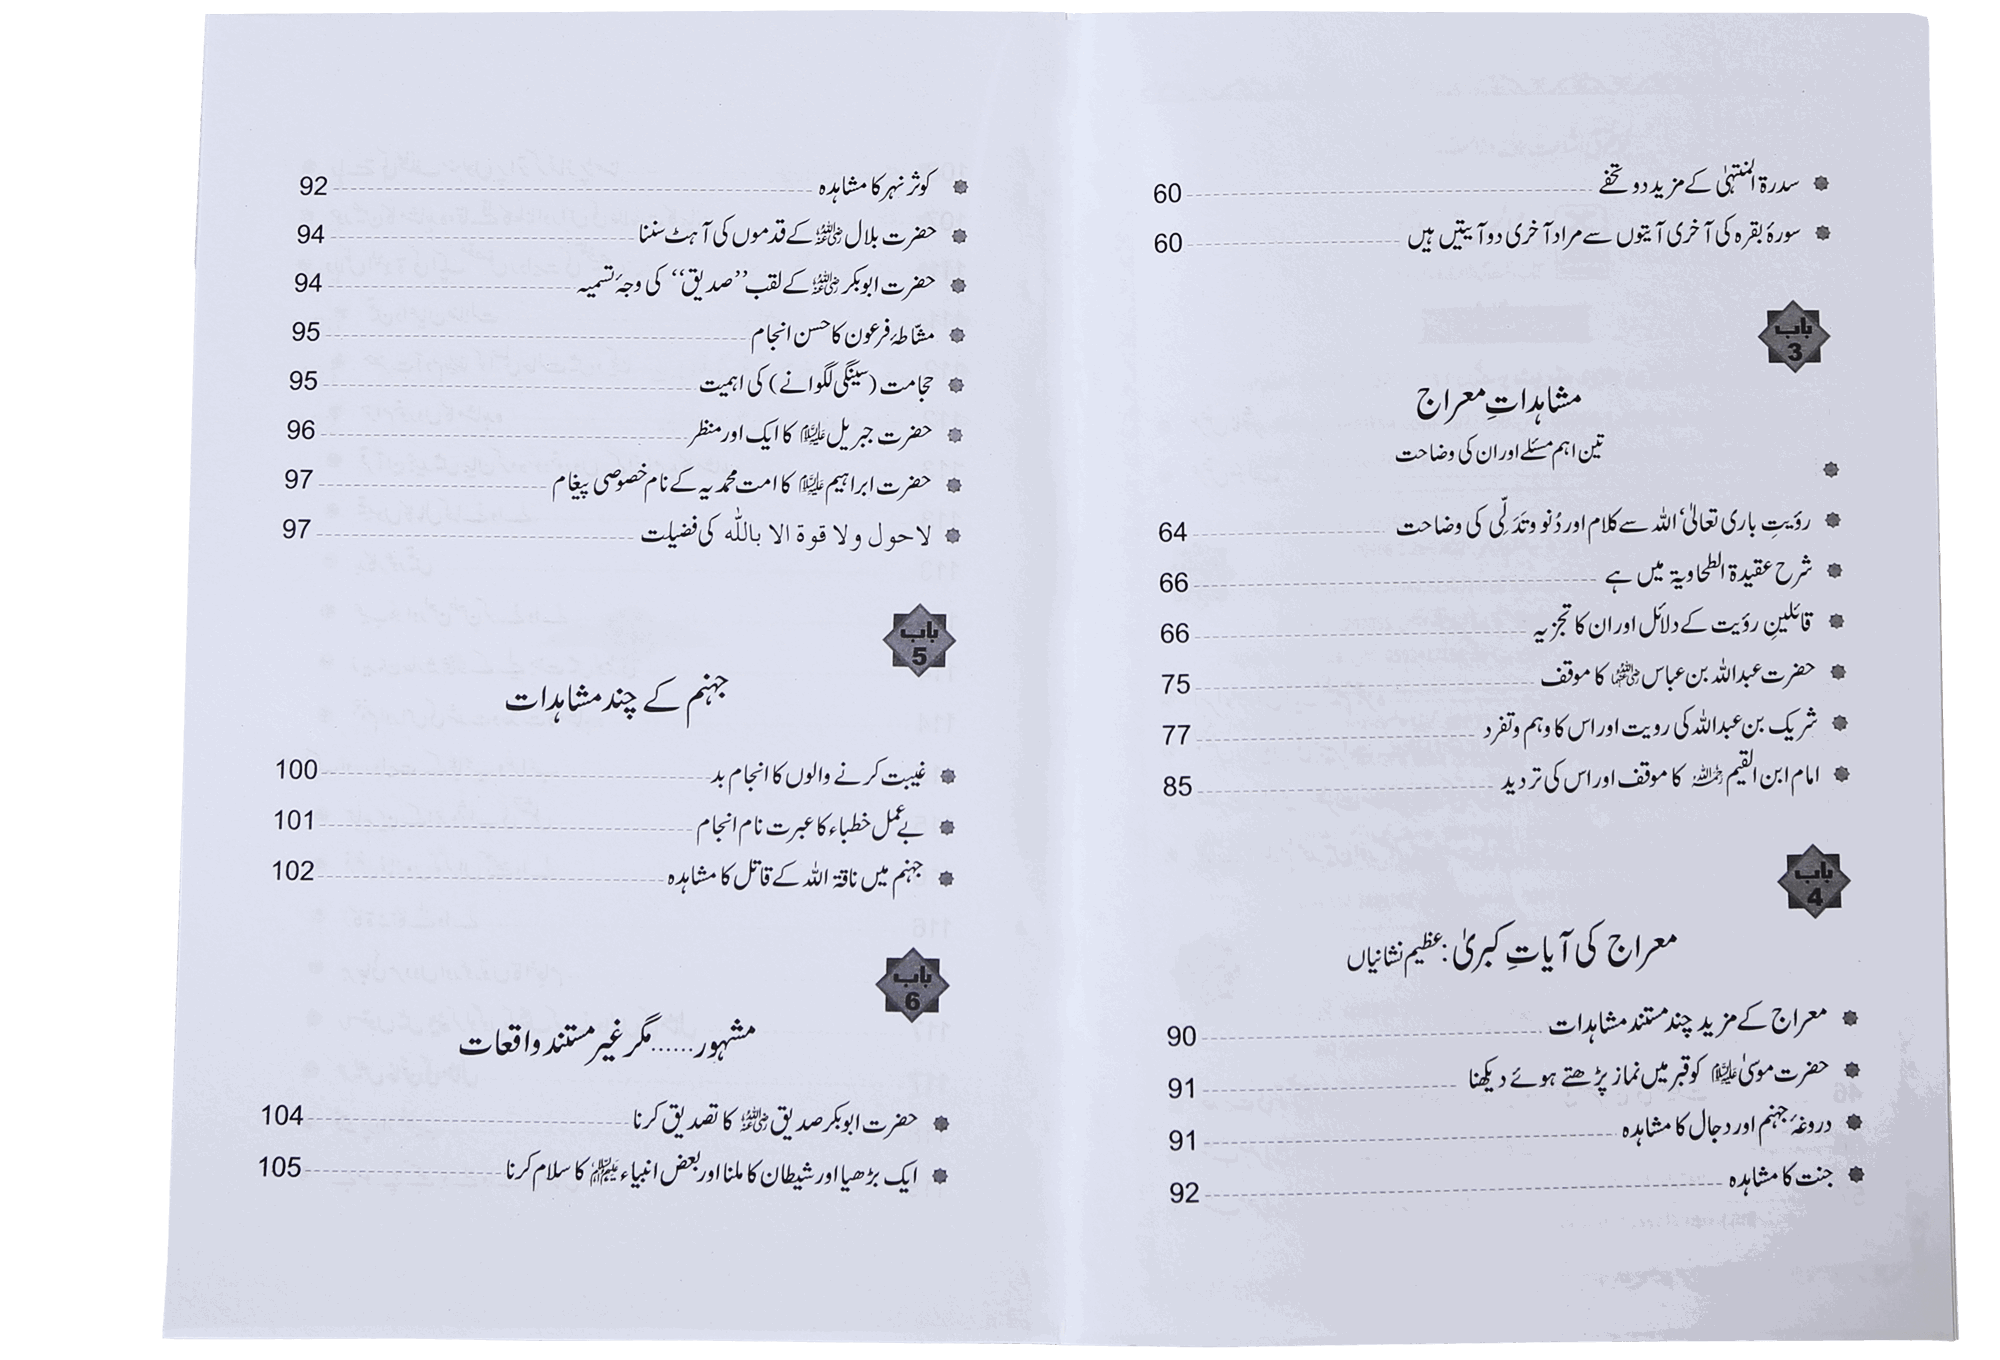 سدرۃ المنتہیٰ کے مزید دو تحفے 60
سورۂ بقرہ کی آخری آیتوں سے مراد آخری دو آیتیں ہیں 60
باب 3
مشاہداتِ معراج
تین اہم مسئلے اور ان کی وضاحت
رؤیتِ باری تعالیٰ، اللہ سے کلام اور دُنو و تَدَلّی کی وضاحت 64
شرح عقیدۃ الطحاویۃ میں ہے 66
قائلینِ رؤیت کے دلائل اور ان کا تجزیہ 66
حضرت عبداللہ بن عباس رضی اللہ عنہما کا موقف 75
شریک بن عبداللہ کی رویت اور اس کا وہم و تفرد 77
امام ابن القیم رحمہ اللہ کا موقف اور اس کی تردید 85
باب 4
معراج کی آیاتِ کبریٰ: عظیم نشانیاں
معراج کے مزید چند مستند مشاہدات 90
حضرت موسیٰ علیہ السلام کو قبر میں نماز پڑھتے ہوئے دیکھنا 91
دروغۂ جہنم اور دجال کا مشاہدہ 91
جنت کا مشاہدہ 92
کوثر نہر کا مشاہدہ 92
حضرت بلال رضی اللہ عنہ کے قدموں کی آہٹ سننا 94
حضرت ابوبکر رضی اللہ عنہ کے لقب ”صدیق“ کی وجۂ تسمیہ 94
مشّاطۂ فرعون کا حسن انجام 95
حجامت (سینگی لگوانے) کی اہمیت 95
حضرت جبریل علیہ السلام کا ایک اور منظر 96
حضرت ابراہیم علیہ السلام کا امت محمدیہ کے نام خصوصی پیغام 97
لاحول ولا قوۃ الا باللہ کی فضیلت 97
باب 5
جہنم کے چند مشاہدات
غیبت کرنے والوں کا انجام بد 100
بے عمل خطباء کا عبرت نام انجام 101
جہنم میں ناقۃ اللہ کے قاتل کا مشاہدہ 102
باب 6
مشہور......مگر غیر مستند واقعات
حضرت ابوبکر صدیق رضی اللہ عنہ کا تصدیق کرنا 104
ایک بڑھیا اور شیطان کا ملنا اور بعض انبیاء علیہم السلام کا سلام کرنا 105